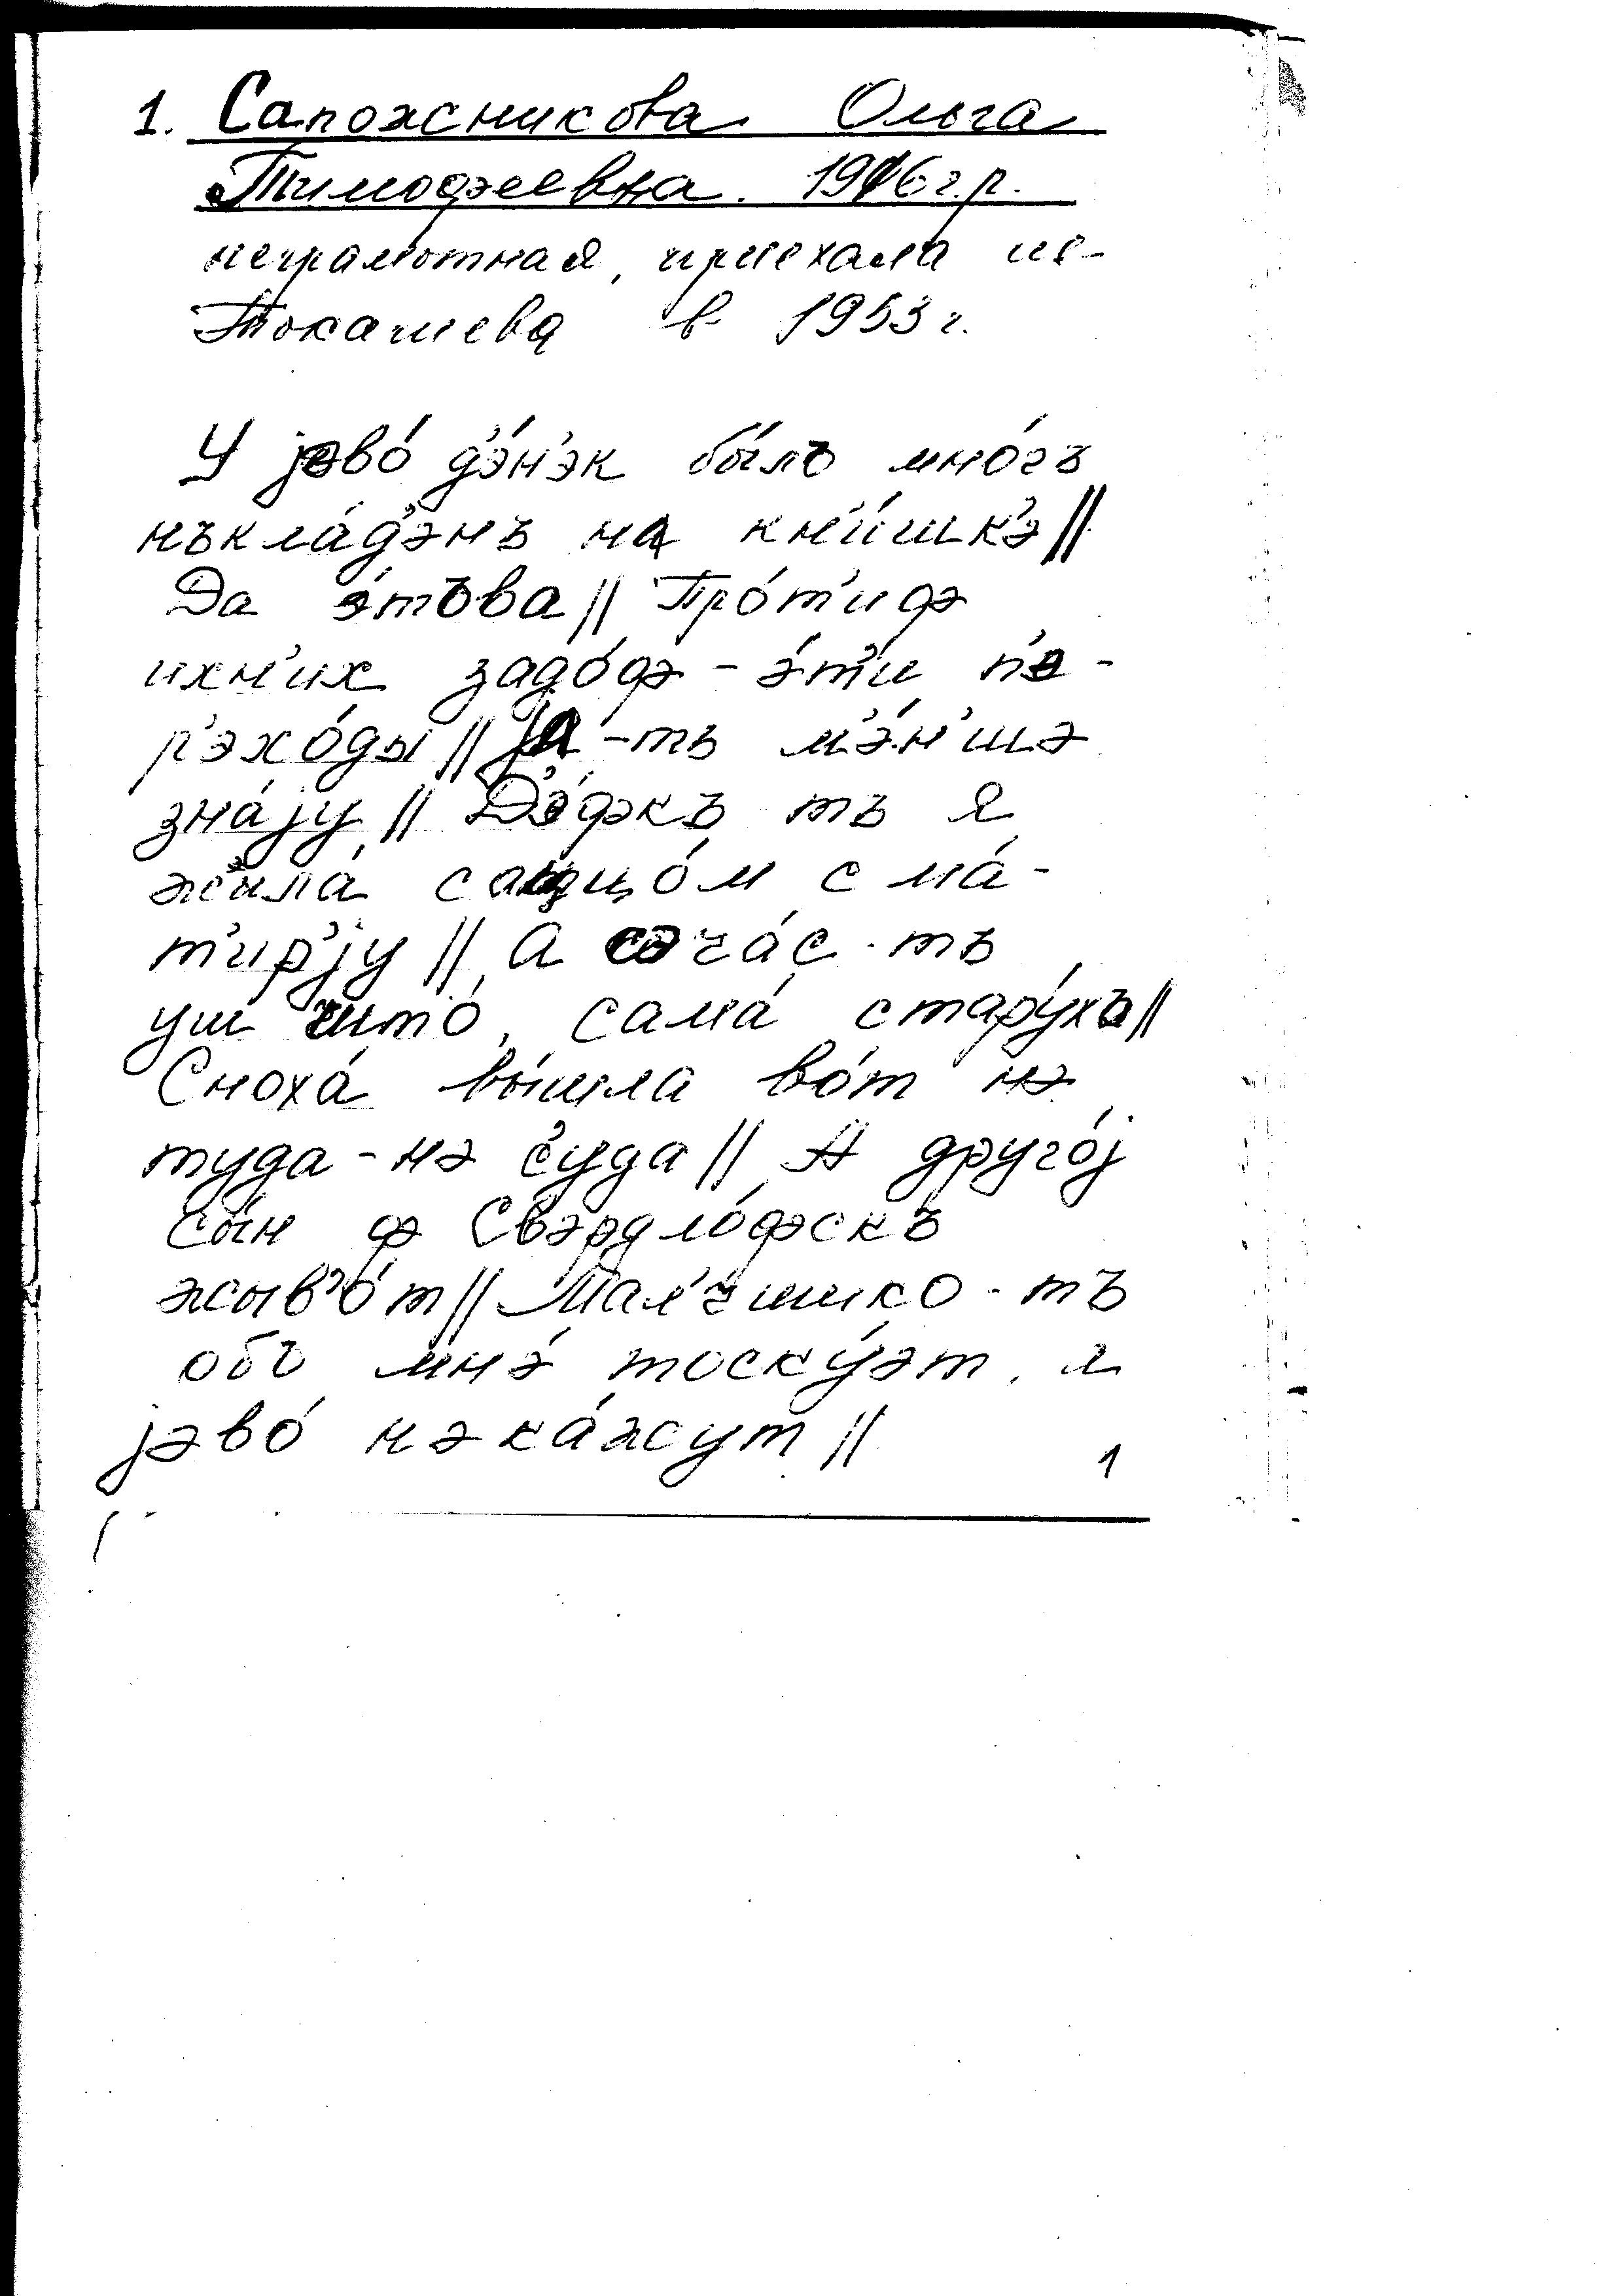 1. Сапожникова Ольга
Тимофеевна. 1916 г.р.
неграмотная, приехала из
Токашева в 1953 г.
У јэво́ д'э́н'эк бы́лъ мно́гъ
нъкла́д'энъ на кн'и́шк'э ||
Да э́тъва || Про́т'иф
ихн'их задо́ф - э́т'и п'э-
р'эхо́ды || Ја-тъ м'э́н'шэ
зна́ју || Д'э́фкъ тъ я
жыла́ с оццо́м с ма́-
т'ир'ју || А сэча́с-тъ
уш што́, сама́ стару́хъ ||
Сноха́ вы́шла во́т нэ
туда - нэ с'уда || А друго́ј
сы́н ф Свэрдло́фскъ
жыв'о́т || Мал'чишко-тъ
объ мнэ́ тоску́эт, а
јэво́ нэ ка́жут ||
1